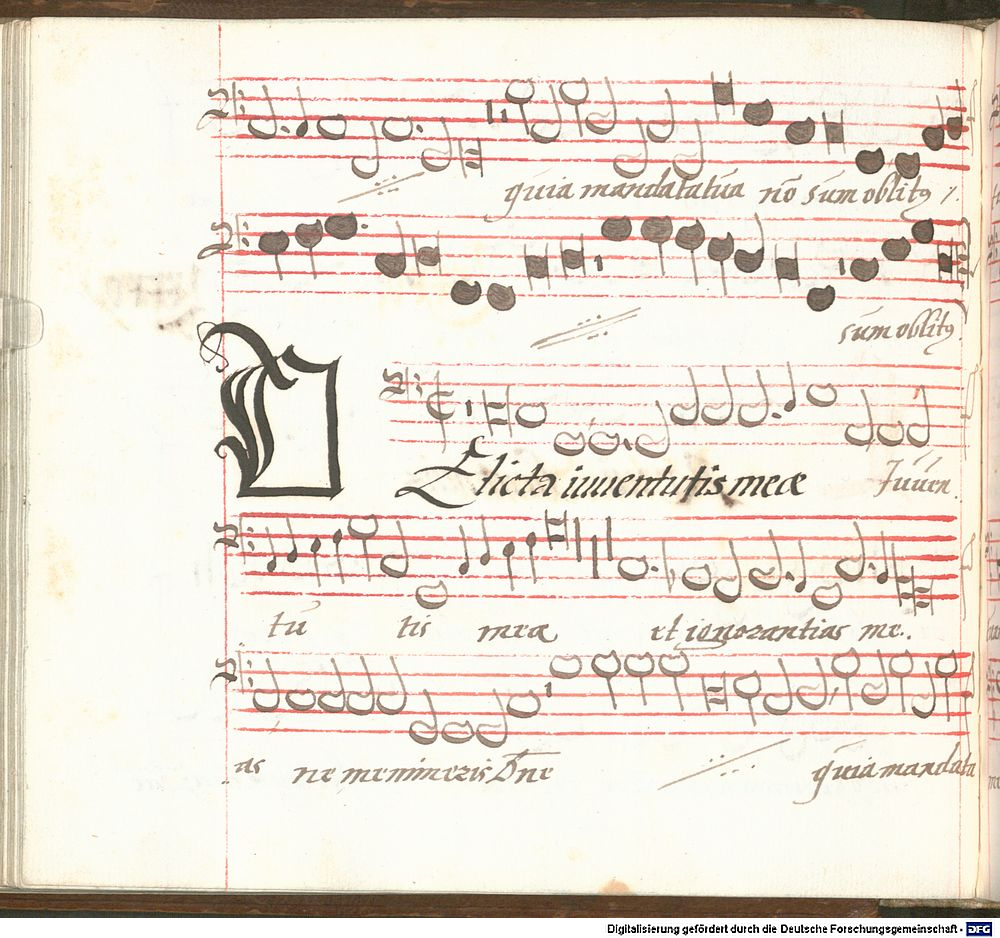 quia mandata tua nō sum oblitꝰ ⁒
sum oblitꝰ.
D
Elicta iuventutis meæ Iuven
tu tis mea et ignorantias me..
as ne memineris Dn̄e quia mandata
Digitalisierung gefördert durch die Deutsche Forschungsgemeinschaft - DFG